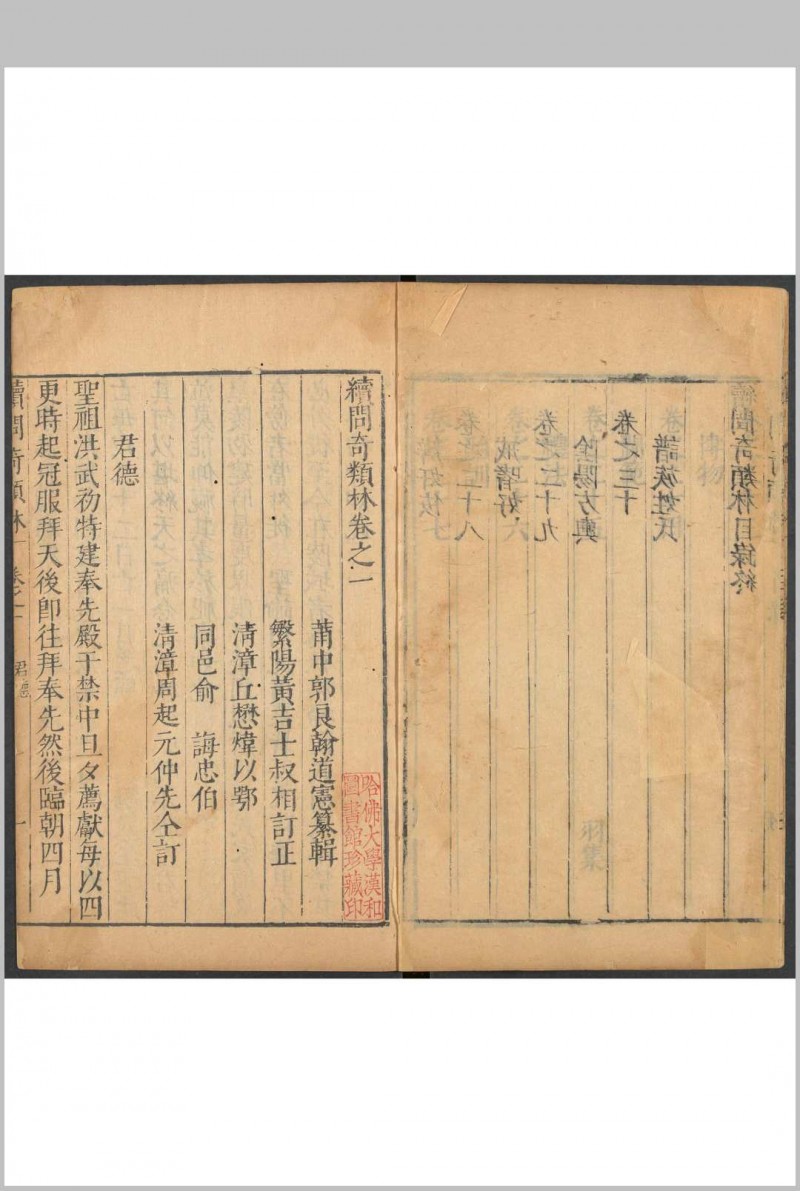 卷之二十八
戒嗜好
卷之二十九
陰陽方輿
卷之三十
譜族姓氏
續問奇類林目錄終
續問奇類林卷之一
莆中郭良翰道憲纂輯
繁陽黃吉士叔相訂正
清漳丘懋煒以鄂
同邑俞　誨忠伯
清漳周起元仲先仝訂
君德
聖祖洪武初特建奉先殿于禁中旦夕薦獻每以四
更時起冠服拜天後卽往拜奉先然後臨朝四月
續問奇類林
卷之一
君德
一
哈佛大學漢和
圖書館珍藏印